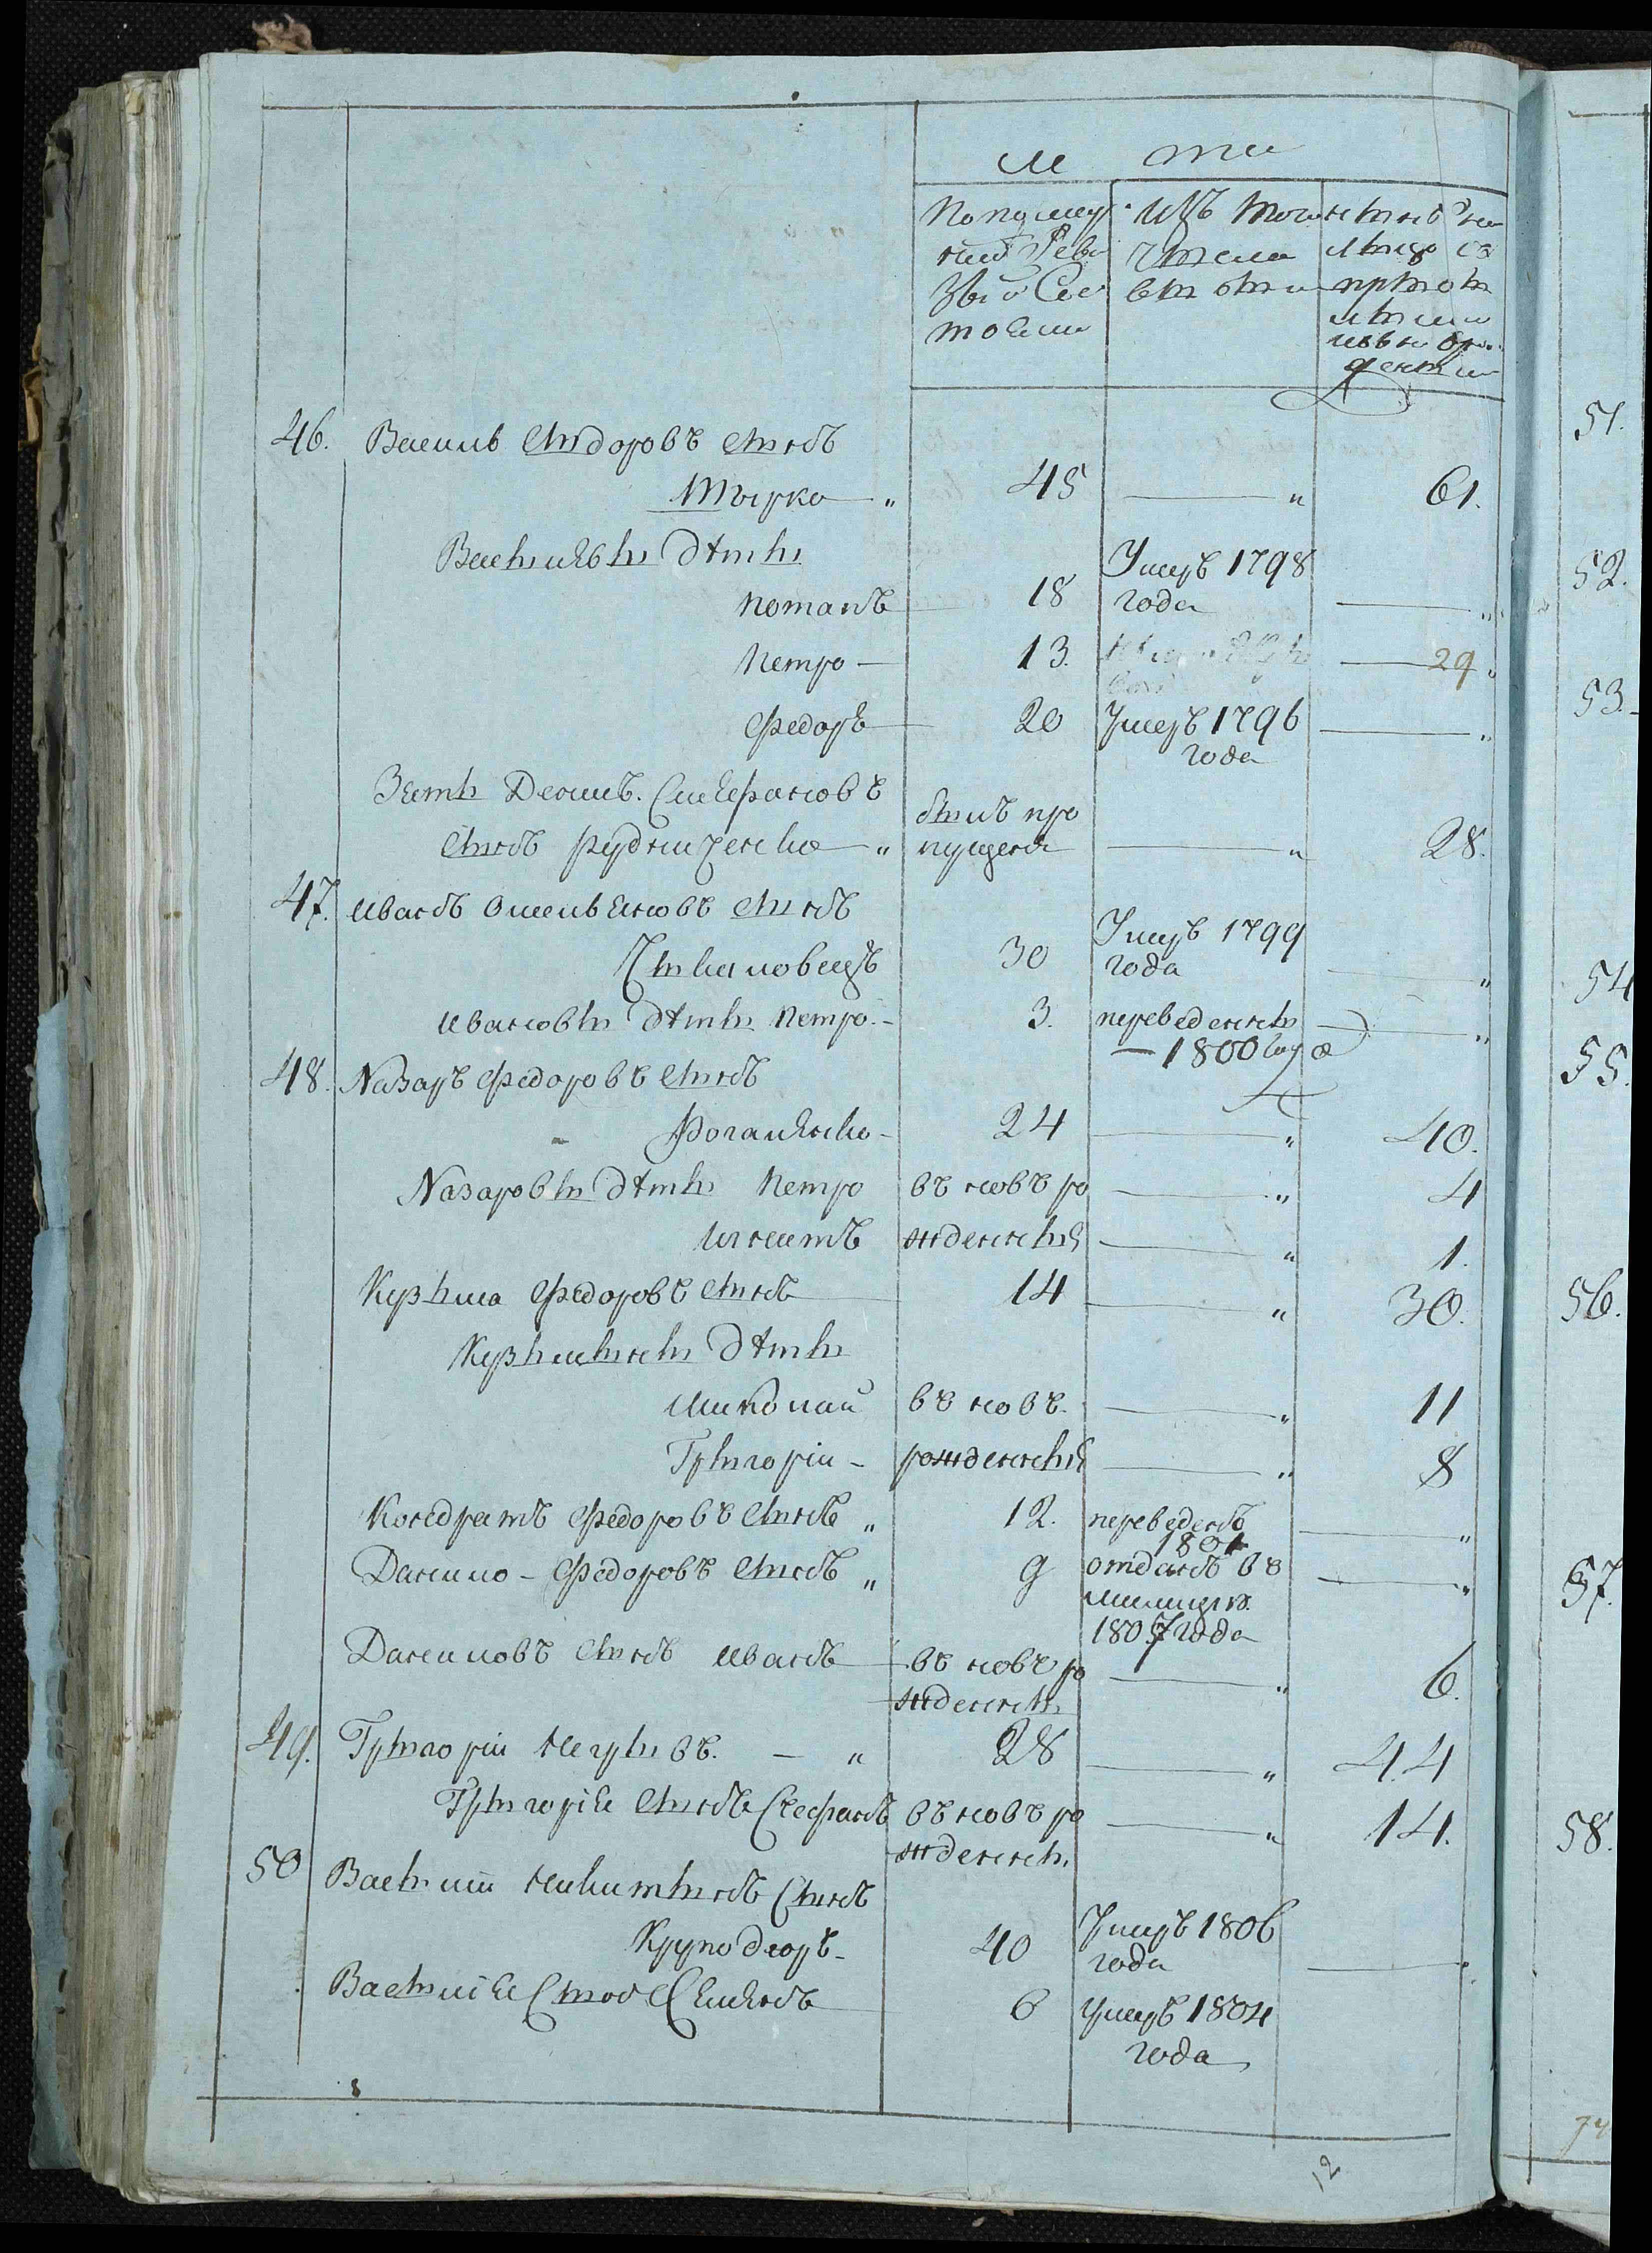 лѣта
По послед
ней Реви
зіи Сос
тояли
Изъ того
числа
выбыли
нынѣ на
лицо со
46. Василь Сидоровъ сынъ
Шпырка " 45 — " 61.
Васильевы дѣти
Потапъ 18 Умеръ 1798
года — "
Петро — 13. — 29
Федоръ 20 Умеръ 1796
года — "
Зять Демянъ
сынъ Рудниченко " былъ про
пущенъ — " 28.
47. Иванъ Омельяновъ сынъ
30 Умеръ 1799
года — "
Ивановы дѣти Петро - 3. переведены
— 1800 года — "
48. Назаръ Федоровъ сынъ
24 — " 40.
Назаровы дѣти Петро въ новъ ро — " 4
Игнатъ жденныя — " 1.
Кузьма Федоровъ сынъ 14 — " 30.
Кузьмины дѣти
Миколай въ новъ. — " 11
Григорій - рожденныя — " 8
Кондратъ Федоровъ сынъ " 12. переведенъ
1801 — "
Данило - Федоровъ сынъ " 9 отданъ въ
милицію.
1807 года — "
Даниловъ сынъ Иванъ въ новъ ро — " 6.
жденны
49. Григорій — " 28 — " 44
Григорія сынъ Стефанъ въ новъ ро — " 14.
жденны.
50 Василій Никитинъ сынъ
Круподеръ - 40 Умеръ 1806
года — "
Василія сынъ Емельянъ 6 Умеръ 1804
года
12
51.
52.
53.
54
55.
56.
57.
58.